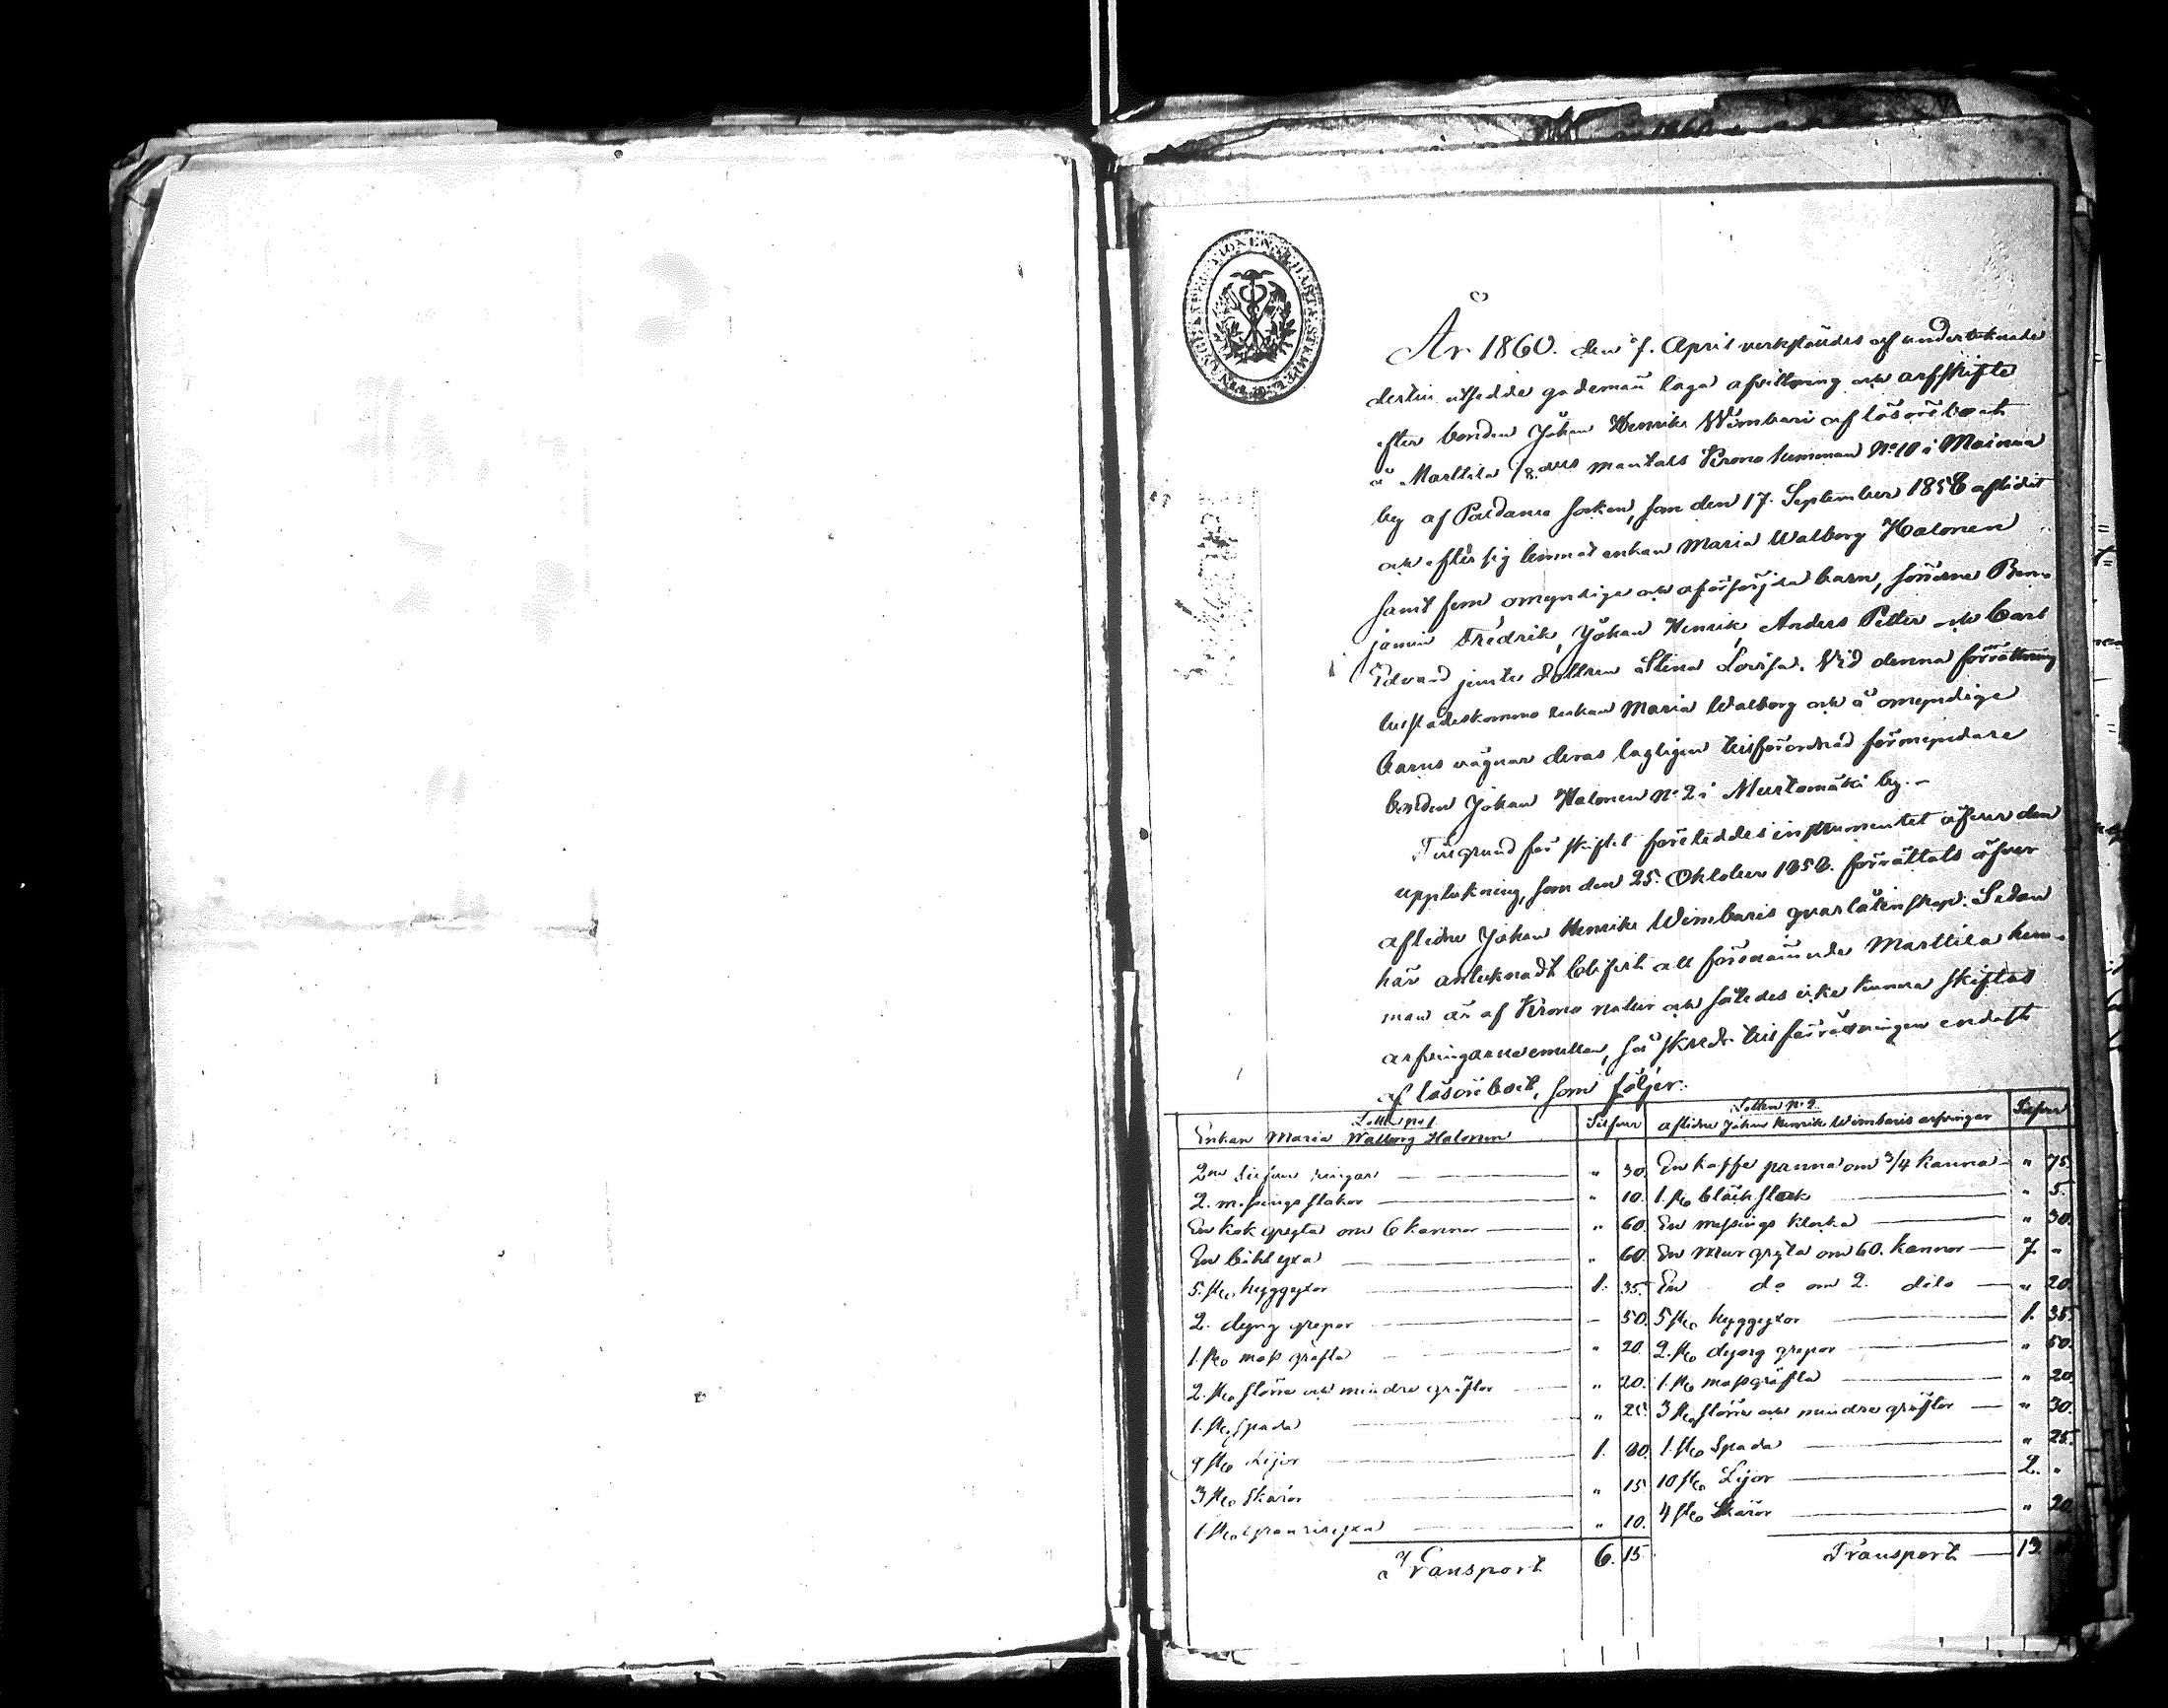 År 1860. den 7. April verkstäldes af undertecknade
dertill utsedde godemän laga afvittring och arfskifte
efter bonden Johan Henrik Wimbari af lösöreboet
å Marttila 1/8 dels mantals Krono hemman No 10 i Mainua
by af Paldamo socken, som den 17. September 1858 aflidit
och efter sig lemnat enkan Maria Walborg Halonen
samt fem omyndige och oförsörjda barn, sönerne Ben-
jamin Fredrik, Johan Henrik, Anders Petter och Carl
Edvard jemte dottren Stina Lovisa. Vid denna förrättning
tillstädeskommo enkan Maria Walborg och å omyndige
barns vägnar deras lagligen tillförordnad förmyndare
bonden Johan Halonen No 2 i Mustomäki by. -
Till grund för skiftet företeddes instrumentet öfver den
uppteckning, som den 25. Oktober 1858. förrättats öfver
aflidne Johan Henrik Wimbaris qvarlåtenskap. Sedan
här antecknadt blifvit att förenämnde Marttila hem-
man är af Krono natur och således icke kunna skiftas
arfvingarne emellan, så skreds till förrättningen endast
af lösöreboet, som följer:
Lotten No 1
Enkan Maria Walborg Halonen Silfver
2ne Silfver ringar " 30.
2. messings stakar " 10.
En kok gryta om 6 kannor " 60.
En bilt yxa " 60.
5. st. huggyxor 1. 35.
2. dyng grepar - 50.
1. st. moss gräfta " 20.
2. st. större och mindre gräftor " 20.
1. st. Spada " 25.
9 st. Lijor 1. 80.
3 st. Skäror " 15
1. st. granrisyxa " 10.
Transport 6. 15.
Lotten No 2.
aflidne Johan Henrik Wimbaris arfvingar Silfver
En kaffe panna om 3/4 kanna " 75.
1. st. bläck " 5.
En messings klocka " 30.
En Mur gryta om 60. kannor 7. "
En do om 2. dito " 20.
5 st. huggyxor 1. 35.
2. st. dyng grepar " 50.
1. st. mossgräfta " 20.
3 st. större och mindre gräftor " 30.
1. st. Spada " 25.
10 st. Lijor 2. "
4 st. Skäror " 20.
Transport 13.